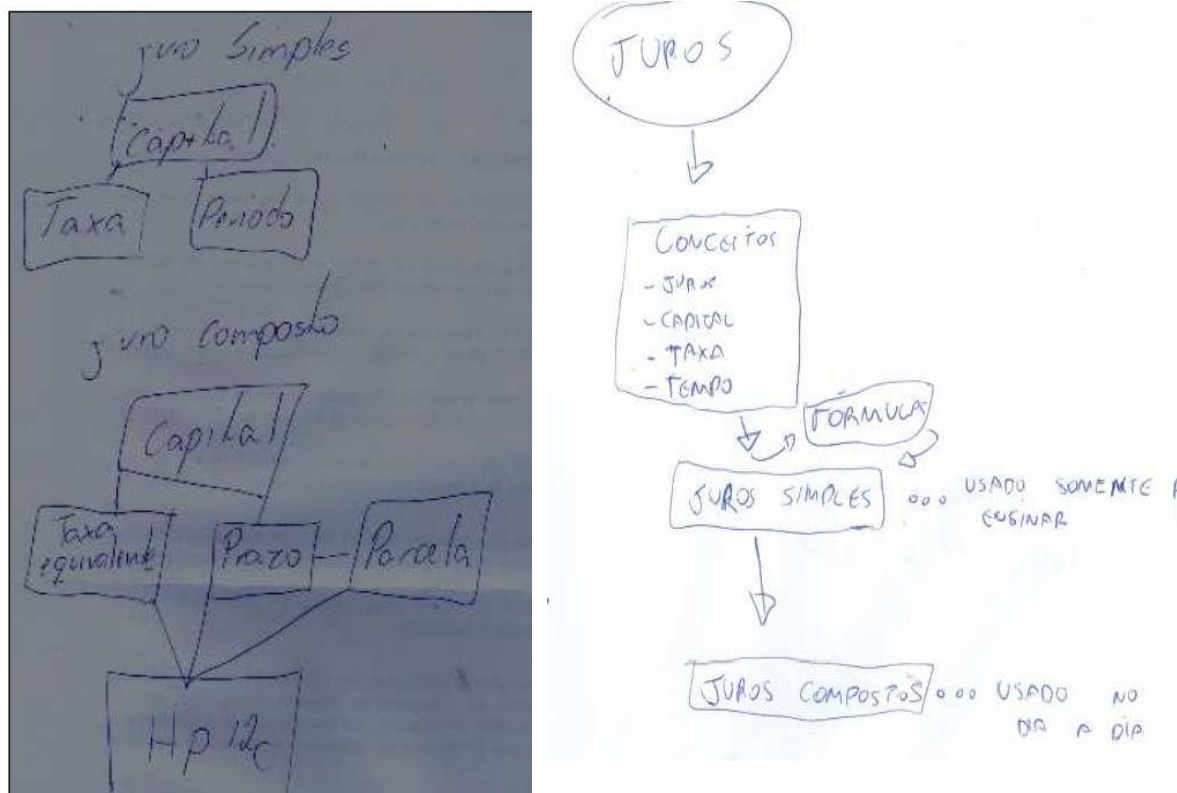 juro Simples
Capital
Taxa
Periodo
juro composto
Capital
Taxa
equivalente
Prazo
Parcela
Hp 12c
JUROS
CONCEITOS
- JUROS
- CAPITAL
- TAXA
- TEMPO
FORMULA
JUROS SIMPLES
USADO SOMENTE
ENSINAR
JUROS COMPOSTOS
USADO NO
DIA A DIA